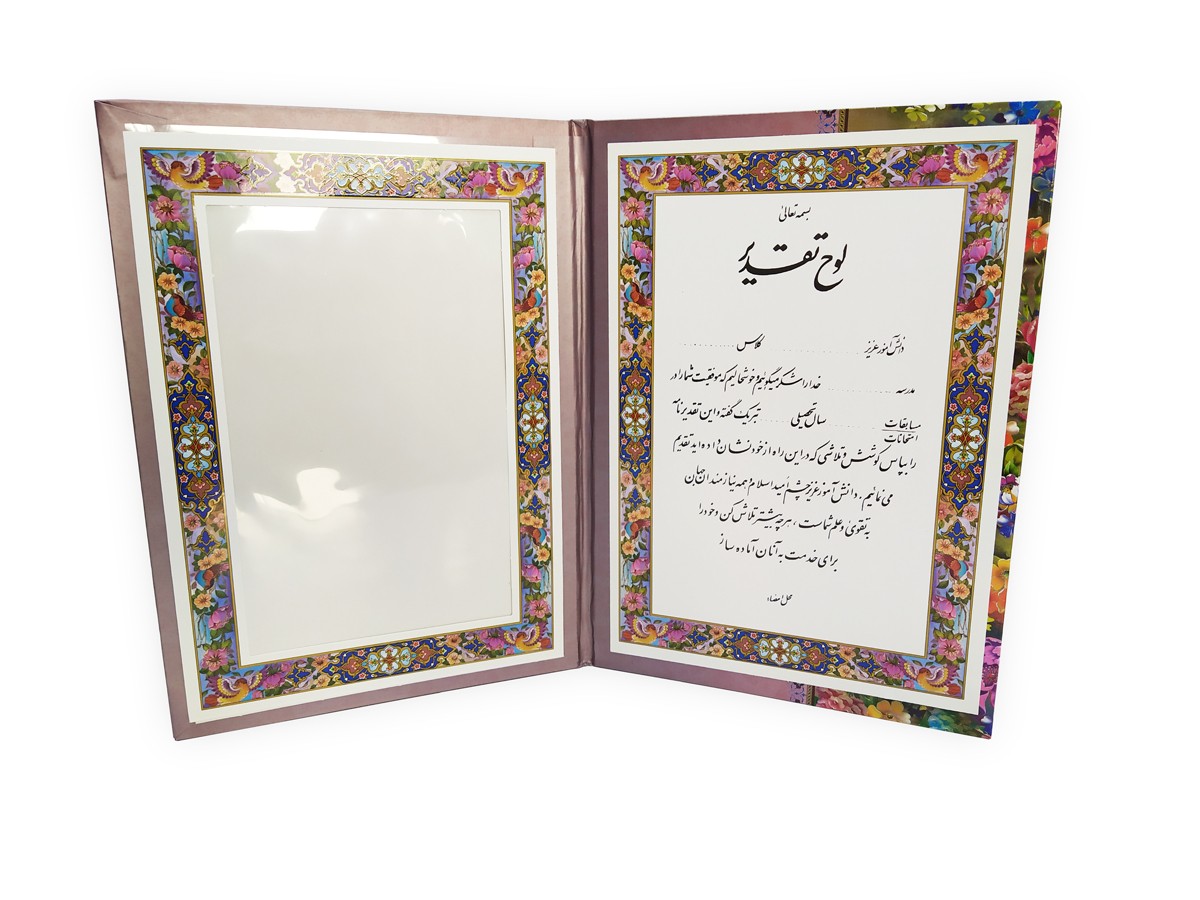 بسمه تعالی
لوح تقدیر
دانش آموز عزیز ........................ کلاس ............
مدرسه ................ خدا را شکر میگوئیم و خوشحالیم که موفقیت شما را در
مسابقات
امتحانات ............ سال تحصیلی ........ تبریک گفته و این تقدیرنامه
را بپاس کوشش و تلاشی که در این راه از خود نشان داده اید تقدیم
می نمائیم . دانش آموز عزیز چشم امید اسلام و همه نیازمندان جهان
به تقوی و علم شماست ، هر چه بیشتر تلاش کن و خود را
برای خدمت به آنان آماده ساز
محل امضاء